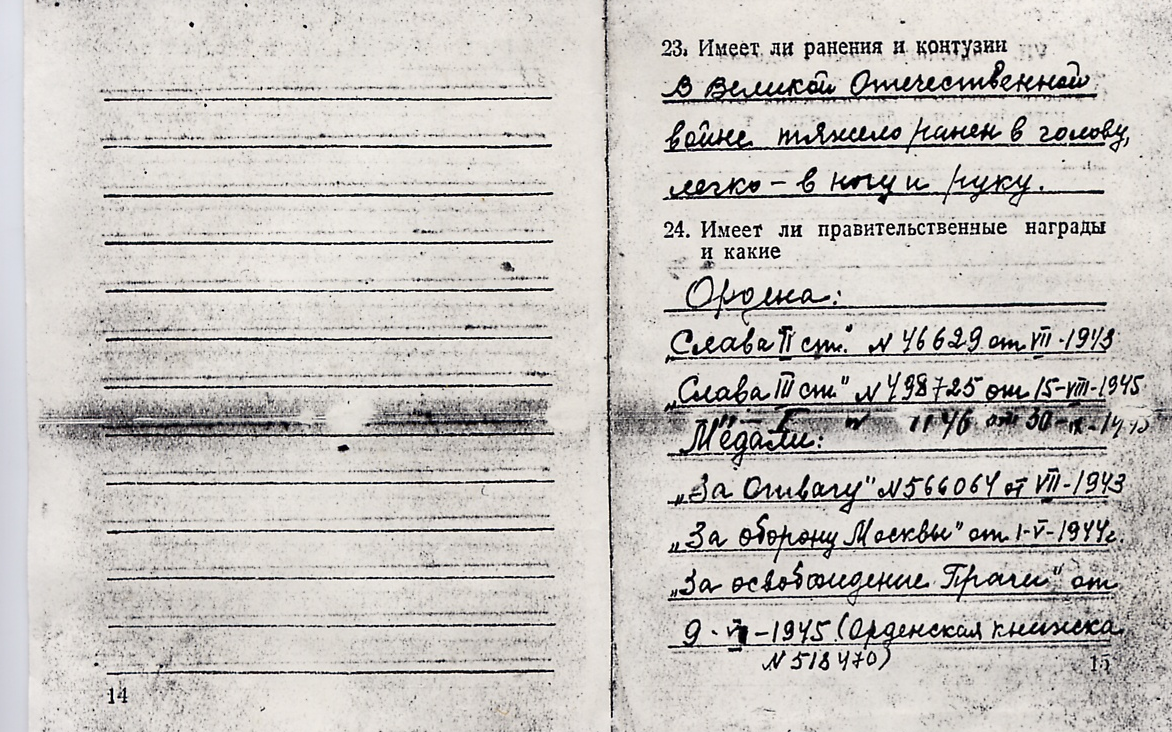 14
23. Имеет ли ранения и контузии
В Великой Отечественной
войне тяжело ранен в голову,
легко – в ногу и руку.
24. Имеет ли правительственные награды
и какие
Ордена:
„Слава II ст." N 46629 от VII-1943
„Слава III ст" N 498725 от 15-VIII-1945
" I " 1146 от 30-IX-
Медали:
„За Отвагу" N566064 от VII-1943
„За оборону Москвы" от 1-V-1944г.
„За освобождение Праги" от
9-VI-1945 (Орденская книжка
N 518470)
15